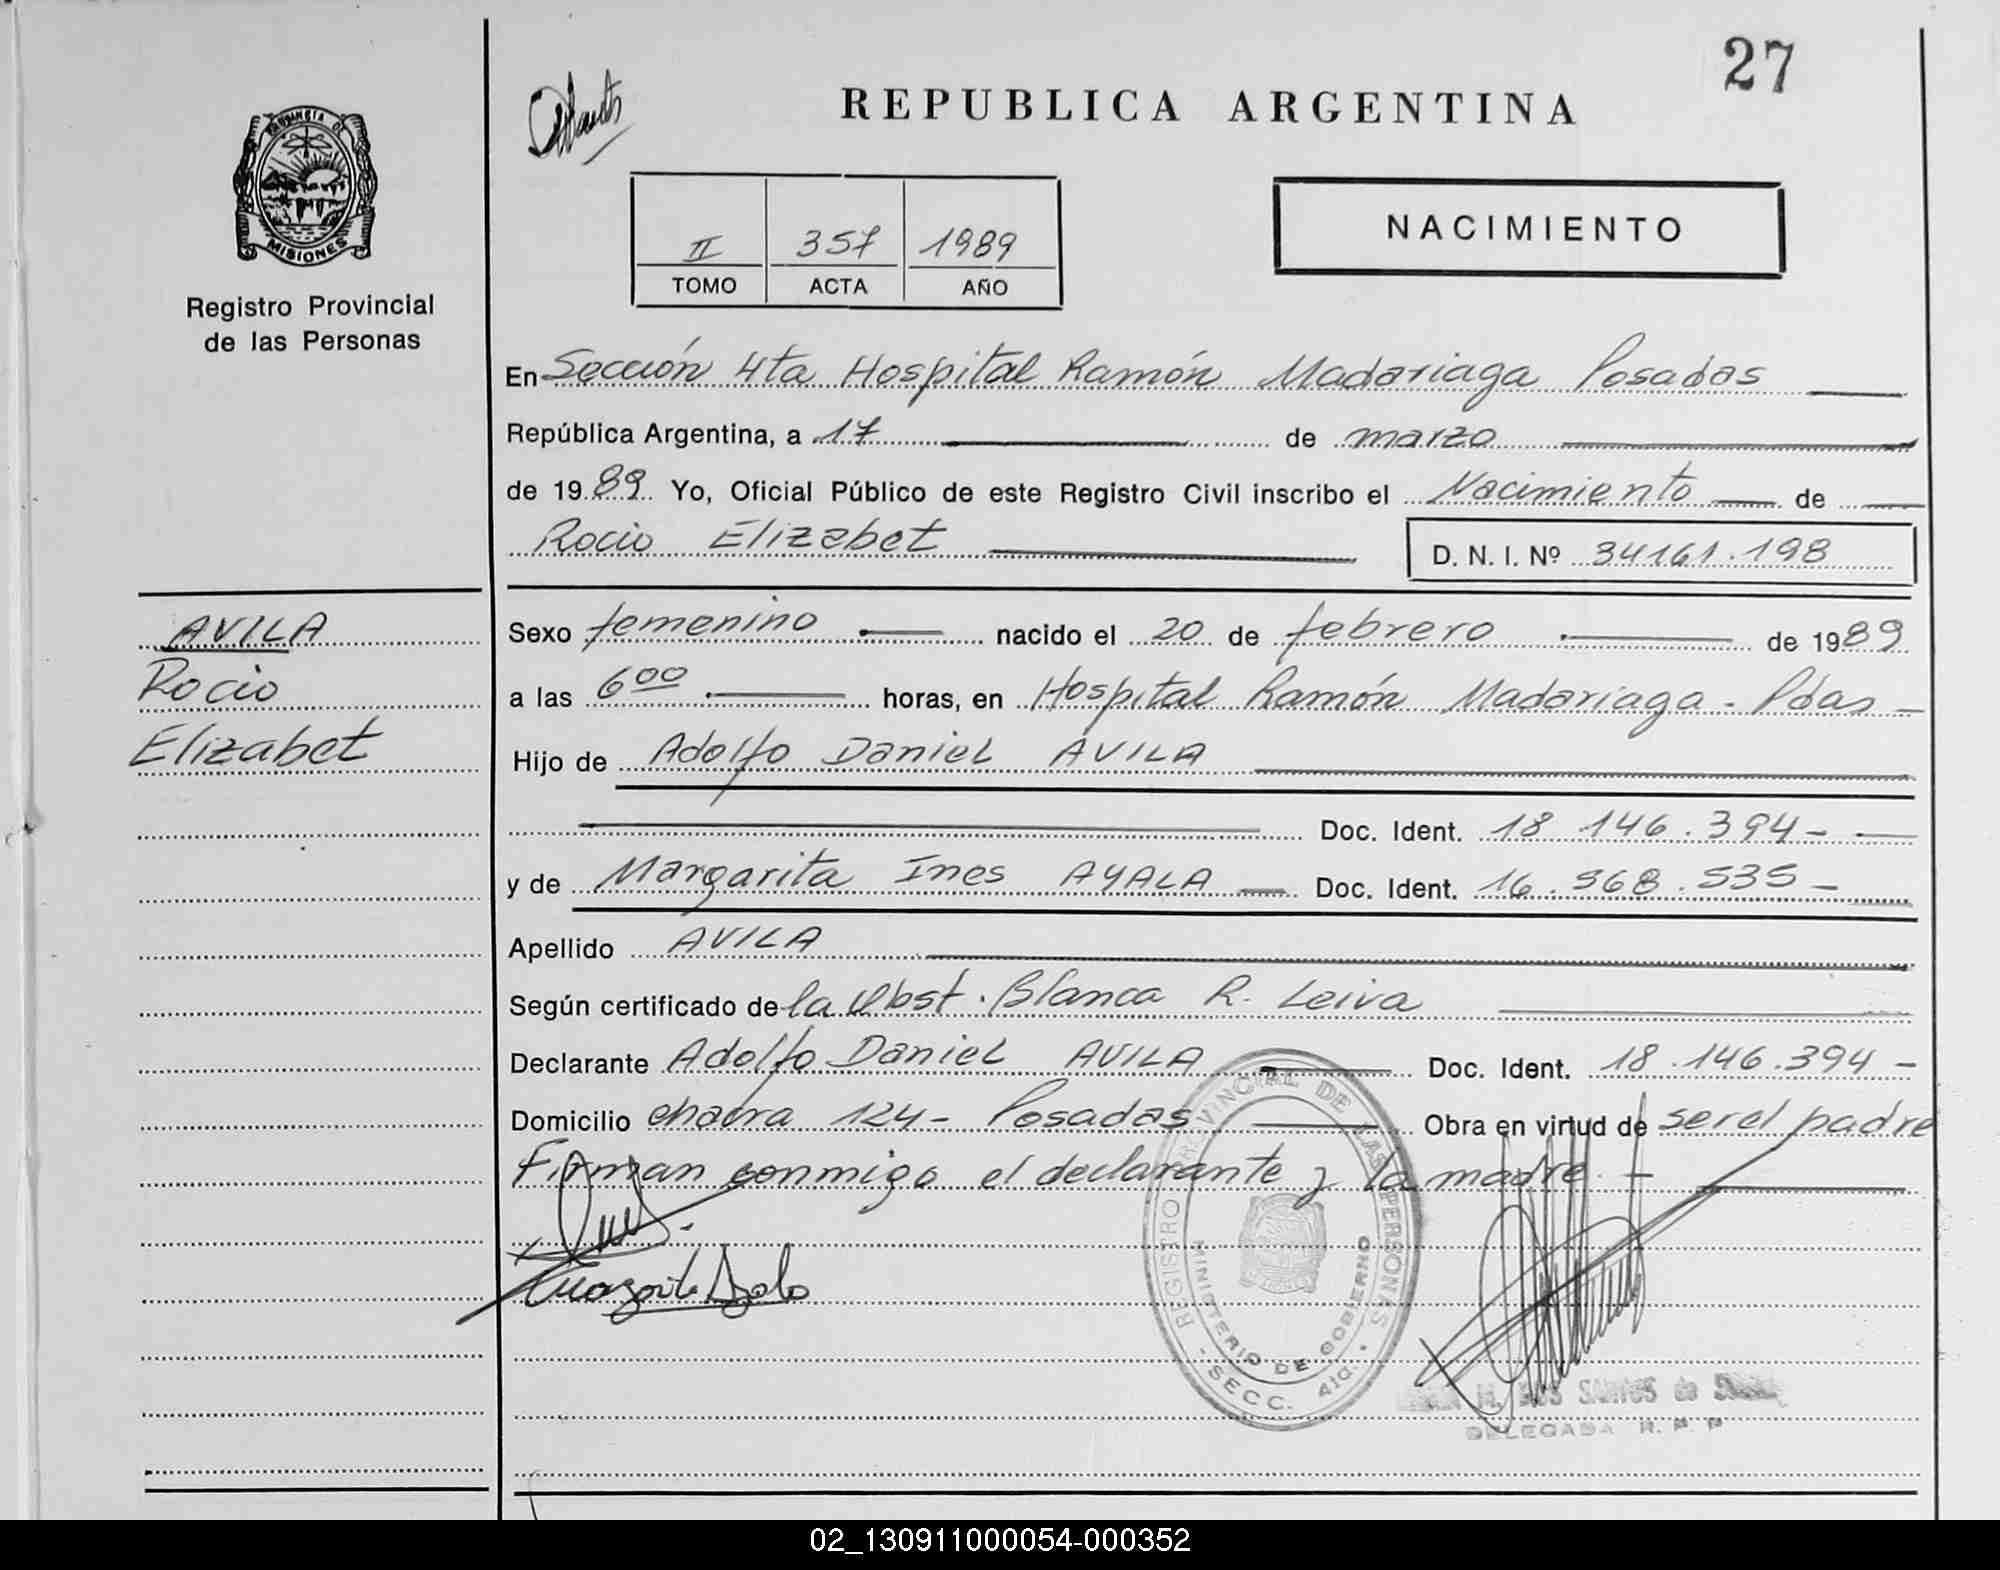 27
REPUBLICA ARGENTINA
PROVINCIA DE
MISIONES
Registro Provincial
de las Personas
II 357 1989
TOMO ACTA AÑO
NACIMIENTO
En Sección 4ta Hospital Ramón Madariaga Posadas
República Argentina, a 17 de marzo
de 1989 Yo, Oficial Público de este Registro Civil inscribo el Nacimiento de
Rocio Elizabet D. N. I. Nº 34161.198
AVILA
Rocio
Elizabet
Sexo femenino nacido el 20 de febrero de 1989
a las 6 00 horas, en Hospital Ramón Madariaga - Pdas -
Hijo de Adolfo Daniel AVILA
Doc. Ident. 18 146.394-
y de Margarita Ines AYALA Doc. Ident. 16.968.535-
Apellido AVILA
Según certificado de la Obst. Blanca R. Leiva
Declarante Adolfo Daniel AVILA Doc. Ident. 18.146.394-
Domicilio chacra 124- Posadas Obra en virtud de ser el padre
Firman conmigo el declarante y la madre -
REGISTRO PROVINCIAL DE LAS PERSONAS
MINISTERIO DE GOBIERNO
- SECC. 4ta. -
M. DOS SANTOS de
DELEGADA R. P. P
02_130911000054-000352